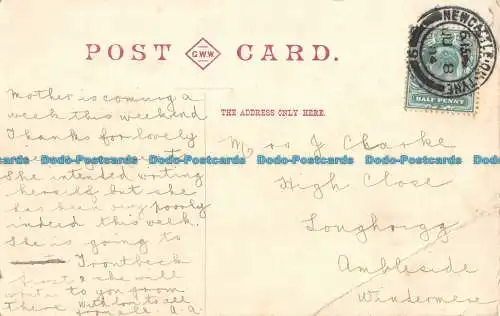 POST CARD.
G.W.W.
NEWCASTLE-ON-TYNE
HALF PENNY
THE ADDRESS ONLY HERE.
Mother is coming a
week this weekend
Thanks for lovely
She intended writing
herself but she
has been very poorly
indeed this week.
She is going to
Trontbeck
first & she will
write to you from
There with love to all
from all a.a.
J Clarke
High Close
Longhrigg
Ambleside
Windermere
Dodo-Postcards Dodo-Postcards Dodo-Postcards Dodo-Postcards Dodo-Postcards